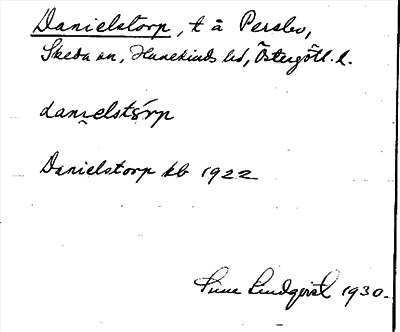 Danielstorp, t å Perslev,
Skeda sn, Hanekinds hd, Östergötl. l.
danielstårp
Danielstorp kb 1922
Sune Lindqvist 1930.